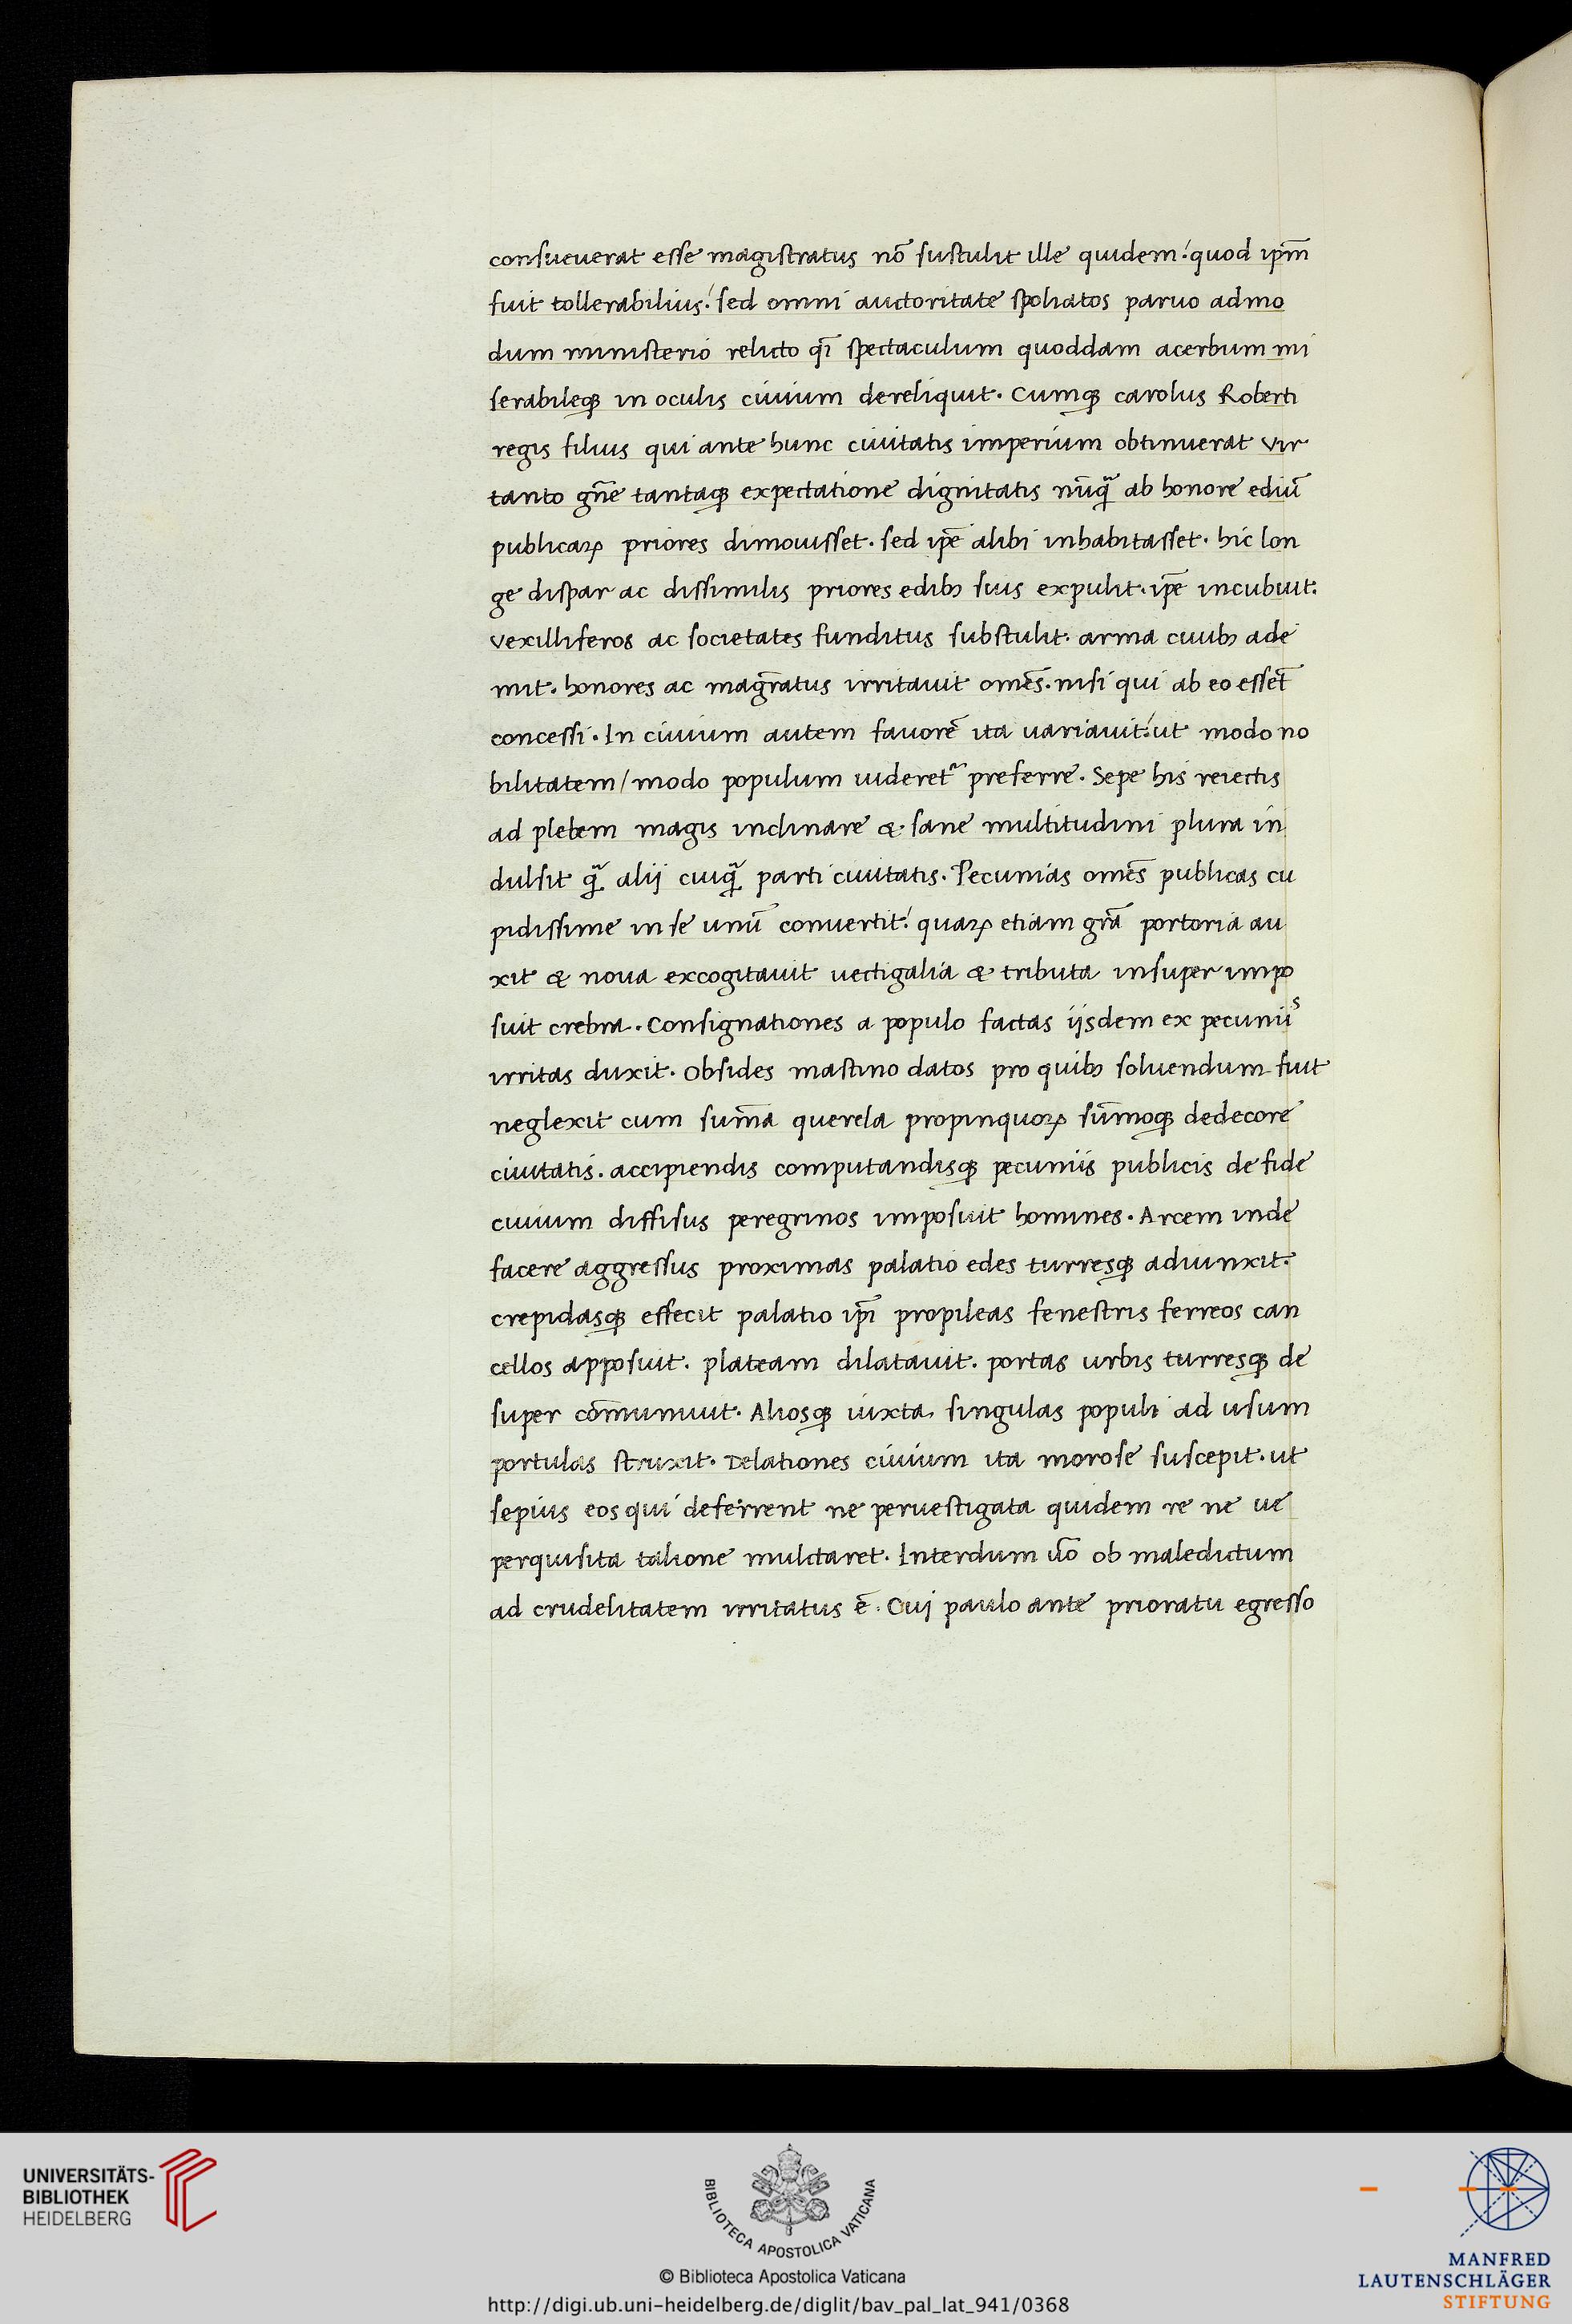 consueuerat esse magistratus nō sustulit ille quidem: quod ipm̄
fuit tollerabilius: sed omni auctoritate spoliatos paruo admo
dum ministerio relicto qͥ spectaculum quoddam acerbum mi
serabileqꝫ in oculis ciuium dereliquit. Cumqꝫ carolus Roberti
regis filius qui ante hunc ciuitatis imperium obtinuerat vir
tanto gn̄e tantaqꝫ expectatione dignitatis nūqᷓ ab honore ediū
publicaꝝ priores dimouisset. sed ip̄e alibi inhabitasset. hic lon
ge dispar ac dissimilis priores edibꝫ suis expulit. ip̄e incubuit.
vexilliferos ac societates funditus substulit. arma ciuibꝫ ade
mit. honores ac magr̄atus irritauit omēs. nisi qui ab eo essēt
concessi. In ciuium autem fauorē ita uariauit: ut modo no
bilitatem / modo populum uideretᷣ preferre. Sepe his reiectis
ad plebem magis inclinare & sane multitudini plura in
dulsit qᷓ alij cuiqᷓ parti ciuitatis. Pecunias omēs publicas cu
pidissime in se unū conuertit: quaꝝ etiam gr̄a portoria au
xit & noua excogitauit uectigalia & tributa insuper impo
suit crebra. Consignationes a populo factas ijsdem ex pecuniis
irritas duxit. Obsides mastino datos pro quibꝫ soluendum fuit
neglexit cum sum̄a querela propinquoꝝ sum̄oqꝫ dedecore
ciuitatis. accipiendis computandisqꝫ pecuniis publicis de fide
ciuium diffisus peregrinos imposuit homines. Arcem inde
facere aggressus proximas palatio edes turresqꝫ adiunxit.
crepidasqꝫ effecit palatio ip̄i propileas fenestris ferreos can
cellos apposuit. plateam dilatauit. portas urbis turresqꝫ de
super com̄uniuit. Aliosqꝫ iuxta singulas populi ad usum
portulas struxit. Delationes ciuium ita morose suscepit. ut
sepius eos qui deferrent ne peruestigata quidem re ne ue
perquisita talione mulctaret. Interdum uō ob maledictum
ad crudelitatem irritatus ē. Cuj paulo ante prioratu egresso
UNIVERSITÄTS-
BIBLIOTHEK
HEIDELBERG
BIBLIOTECA APOSTOLICA VATICANA
© Biblioteca Apostolica Vaticana
http://digi.ub.uni-heidelberg.de/diglit/bav_pal_lat_941/0368
MANFRED
LAUTENSCHLÄGER
STIFTUNG